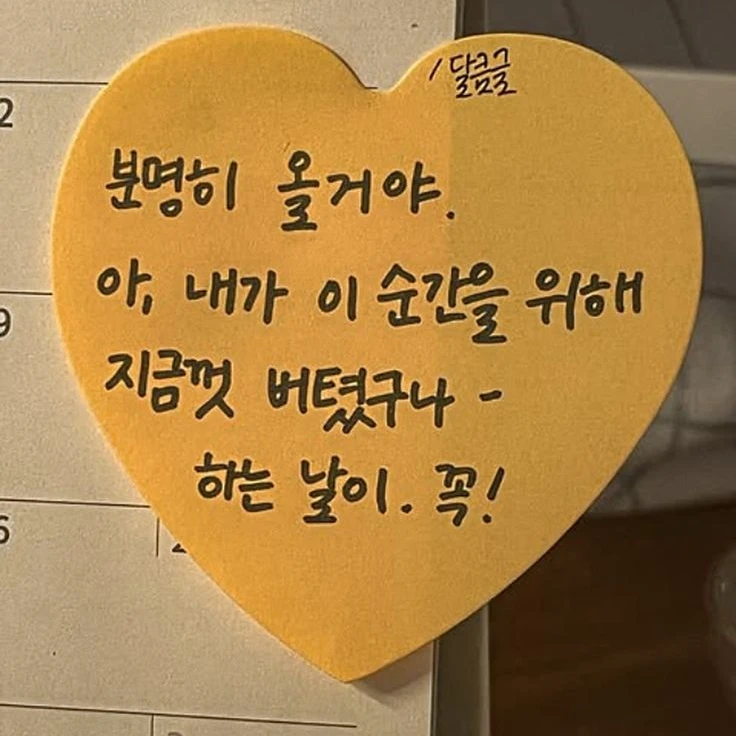 /달큼글
분명히 올거야.
아, 내가 이 순간을 위해
지금껏 버텼구나 -
하는 날이. 꼭!
2
9